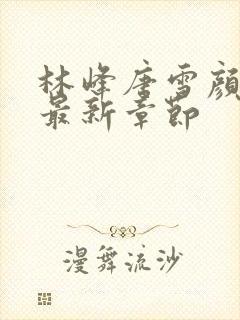 林峰唐雪颜
最新章节
漫舞流沙